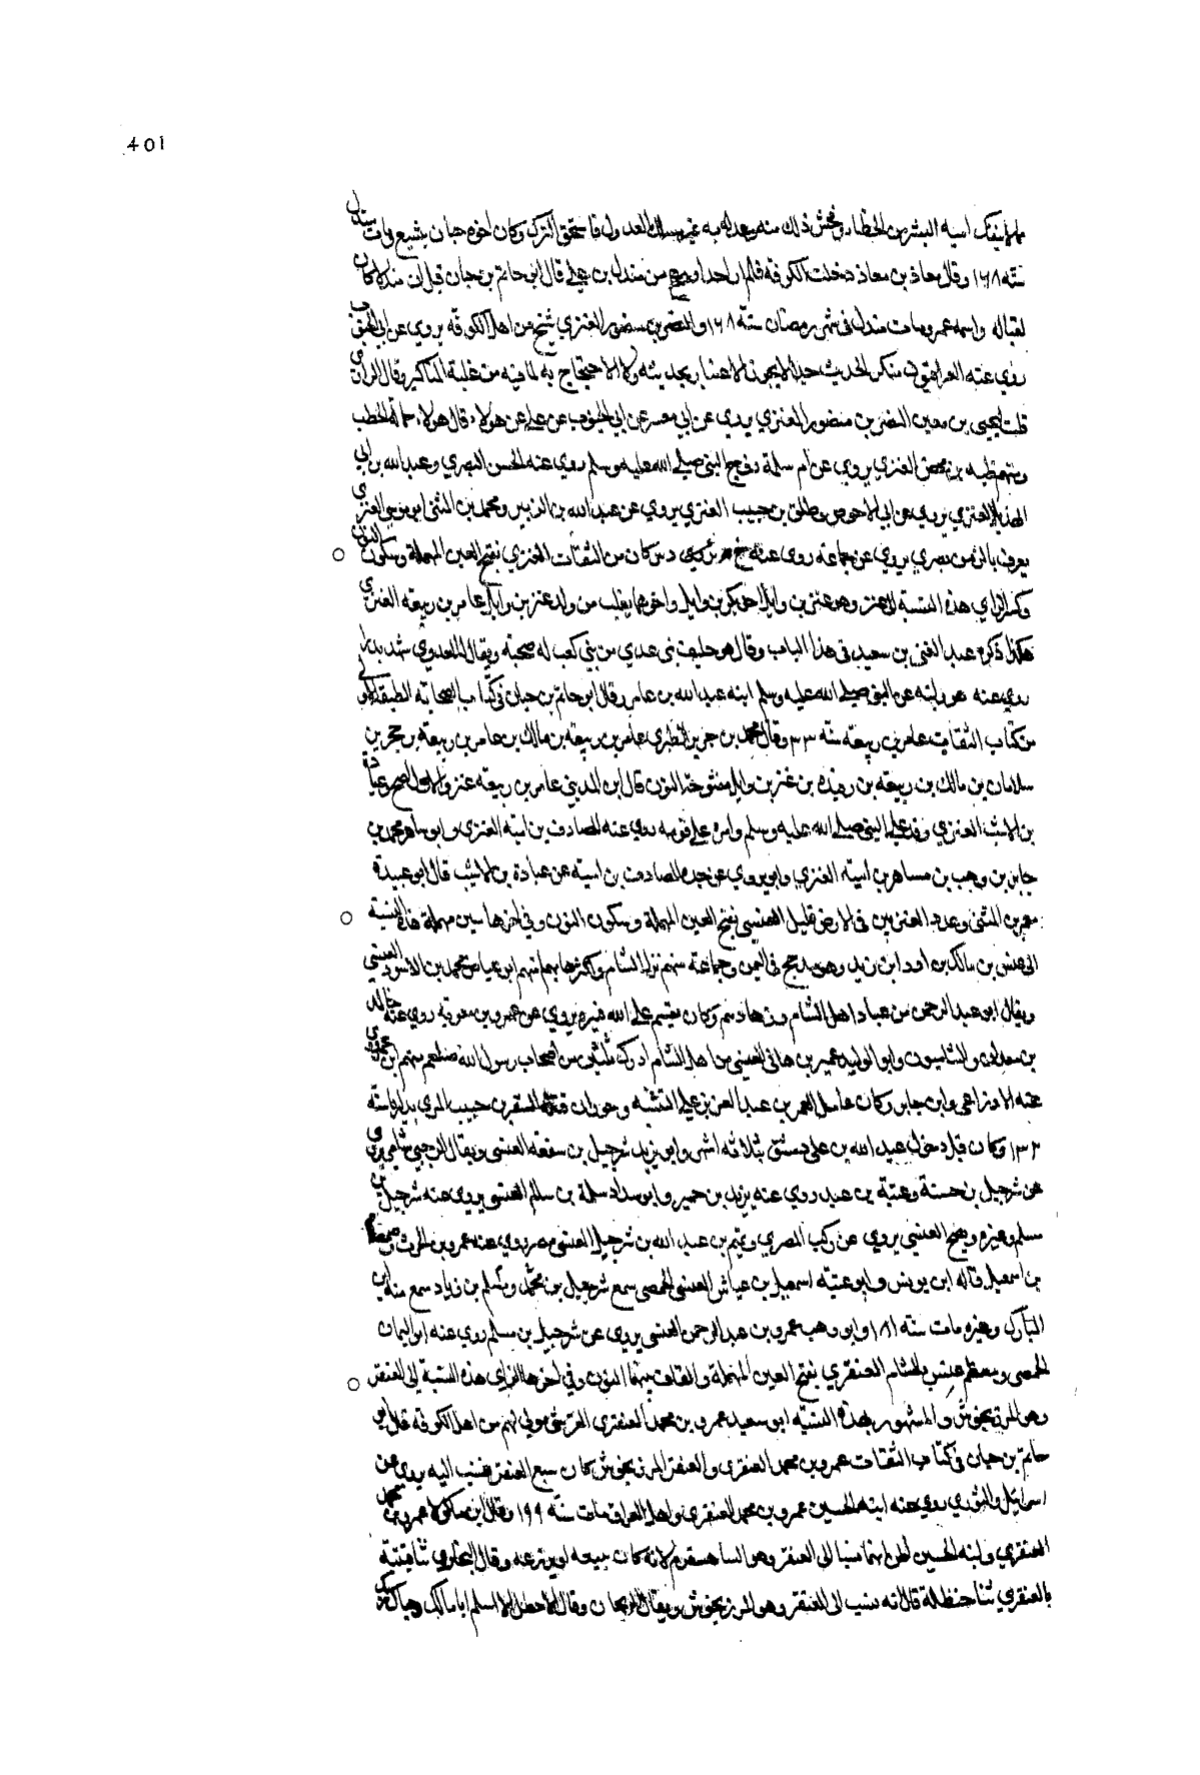 401
اليه البشر من الخطاء وفحش ذلك منه وعدل به غير مسلك العدول فاستحق الترك وكان اخوه حبان يتشيع ومات مندل
سنة ١٦٨ وقال معاذ بن معاذ دخلت الكوفة فلم ار احدا اورع من مندل بن علي قال ابو حاتم بن حبان قيل ان مندلا كان
لقباله واسمه عمرو مات مندل في شهر رمضان سنة ١٦٨ والنضر بن منصور العنزي شيخ من اهل الكوفة يروي عن ابي الجنوب
روى عنه العراقيون منكر الحديث جدا لا يجوز الاعتبار بحديثه ولا الاحتجاج به لما فيه من غلبة المناكير وقال الدارمي
قلت ليحيى بن معين النضر بن منصور العنزي يروي عن ابي معسر عن ابي الجنوب عن علي عن هولاء قال هولاء حمالة الحطب
بن محصن العنزي يروي عن ام سلمة زوج النبي صلى الله عليه وسلم روى عنه الحسن البصري وعبد الله بن ابي
الهذيل العنزي يروي عن ابي الاحوص وطلق بن حبيب العنزي يروي عن عبد الله بن الزبير ومحمد بن المثنى ابو موسى العنزي
يعرف بالزمن بصري يروي عن جماعة روى عنه كان من الثقات العنزي بفتح العين المهملة وسكون النون
وكسر الزاي هذه النسبة الى عنز وهو عنز بن وايل اخو بكر بن وايل واخوهما تغلب من ولد عنز بن وايل عامر بن ربيعة العنزي
هكذا ذكره عبد الغني بن سعيد في هذا الباب وقال هو حليف بني عدي من بني كعب له صحبة ويقال له العدوي شهد بدرا
روى عنه ابنه عبد الله بن عامر وقال ابو حاتم بن حبان في كتاب الصحابة الطبقة الاولى
من كتاب الثقات عامر بن ربيعة سنة ٣٣ وقال محمد بن جرير الطبري عامر بن ربيعة بن مالك بن عامر بن ربيعة بن حجر بن
سلامان بن مالك بن ربيعة بن رفيدة بن عنز بن وايل مفتوحة النون قال ابن المديني عامر بن ربيعة عنز والاول اصح وعبادة
بن الاشيب العنزي وفد على النبي صلى الله عليه وسلم وامره على قومه روى عنه الصادف بن امية العنزي وابو مساهر محمد بن
جابر بن وهب بن مساهر بن امية العنزي وابو يروي عن جده الصادف بن امية عن عبادة بن الاشيب قال ابو عبيدة
معمر بن المثنى وعدد العنزيين في الارض قليل العنسي بفتح العين المهملة وسكون النون وفي اخرها سين مهملة هذه النسبة
الى عنس بن مالك بن ادد ابن زيد وهو من مذحج في اليمن وجماعة منهم نزل الشام واكثرها بهم منهم ابو عياض محمد بن الاسود العنسي
ويقال ابو عبد الرحمن من عباد اهل الشام وزهادهم وكان يقسم على الله فيبره يروي عن عمر وبن معوية روى عنه خالد
بن معدان والشاميون وابو الوليد عمير بن هاني العنسي من اهل الشام ادرك ثلثين من اصحاب رسول الله صلعم منهم ابن عمر روى
عنه الاوزاعي وابن جابر وكان عامل العمر بن عبد العزيز على البثنية وحوران قتله الصقر بن حبيب المري بداريا سنة
١٣٢ وكان قبل دخول عبد الله بن علي دمشق بثلاثة اشهر وابو يزيد شرحبيل بن شفعة العنسي ويقال الرحبي شامي يروي
عن شرحبيل بن حسنة وعتبة بن عبد روى عنه يزيد بن خمير وابو سداد سلمة بن سلم العنسي يروي عنه شرحبيل بن
مسلم وغيره ويصيح العنسي يروي عن ركب المصري وتميم بن عبد الله بن شرحبيل العنسي مصر يروي عنه عمرو بن الحرث وضمام
بن اسمعيل قاله ابن يونس وابو عتبة اسمعيل بن عياش العنسي الحمصي سمع شرحبيل بن مسلم ومحمد بن زياد سمع منه ابن
المبارك وغيره مات سنة ١٨١ وابو وهب عمرو بن عبد الرحمن العنسي يروي عن شرحبيل بن مسلم روى عنه ابو اليمان
الحمصي ومعظم عنس بالشام العنقزي بفتح العين المهملة والقاف بينهما النون وفي اخرها الزاي هذه النسبة الى العنقز
وهو المرزنجوش والمشهور بهذه النسبة ابو سعيد عمرو بن محمد العنقزي القرشي مولى لهم من اهل الكوفة قال ابو
حاتم بن حبان في كتاب الثقات عمرو بن محمد العنقزي والعنقز المرزنجوش كان يبيع العنقز فنسب اليه يروي عن
اسرائيل والثوري روى عنه ابنه الحسين بن عمرو بن محمد العنقزي واهل العراق مات سنة ١٩٩ وقال ابن ماكولا عمرو بن محمد
العنقزي وابنه الحسين اظن انهما نسبا الى العنقز وهو لانه كان يبيعه او يزرعه وقال البخاري ثنا قتيبة
بالعنقزي ثنا حنظلة قال انه ينسب الى العنقز وهو المرزنجوش ويقال الريحان وقال الاخطل الا اسلم ابا مالك وحياك ربك